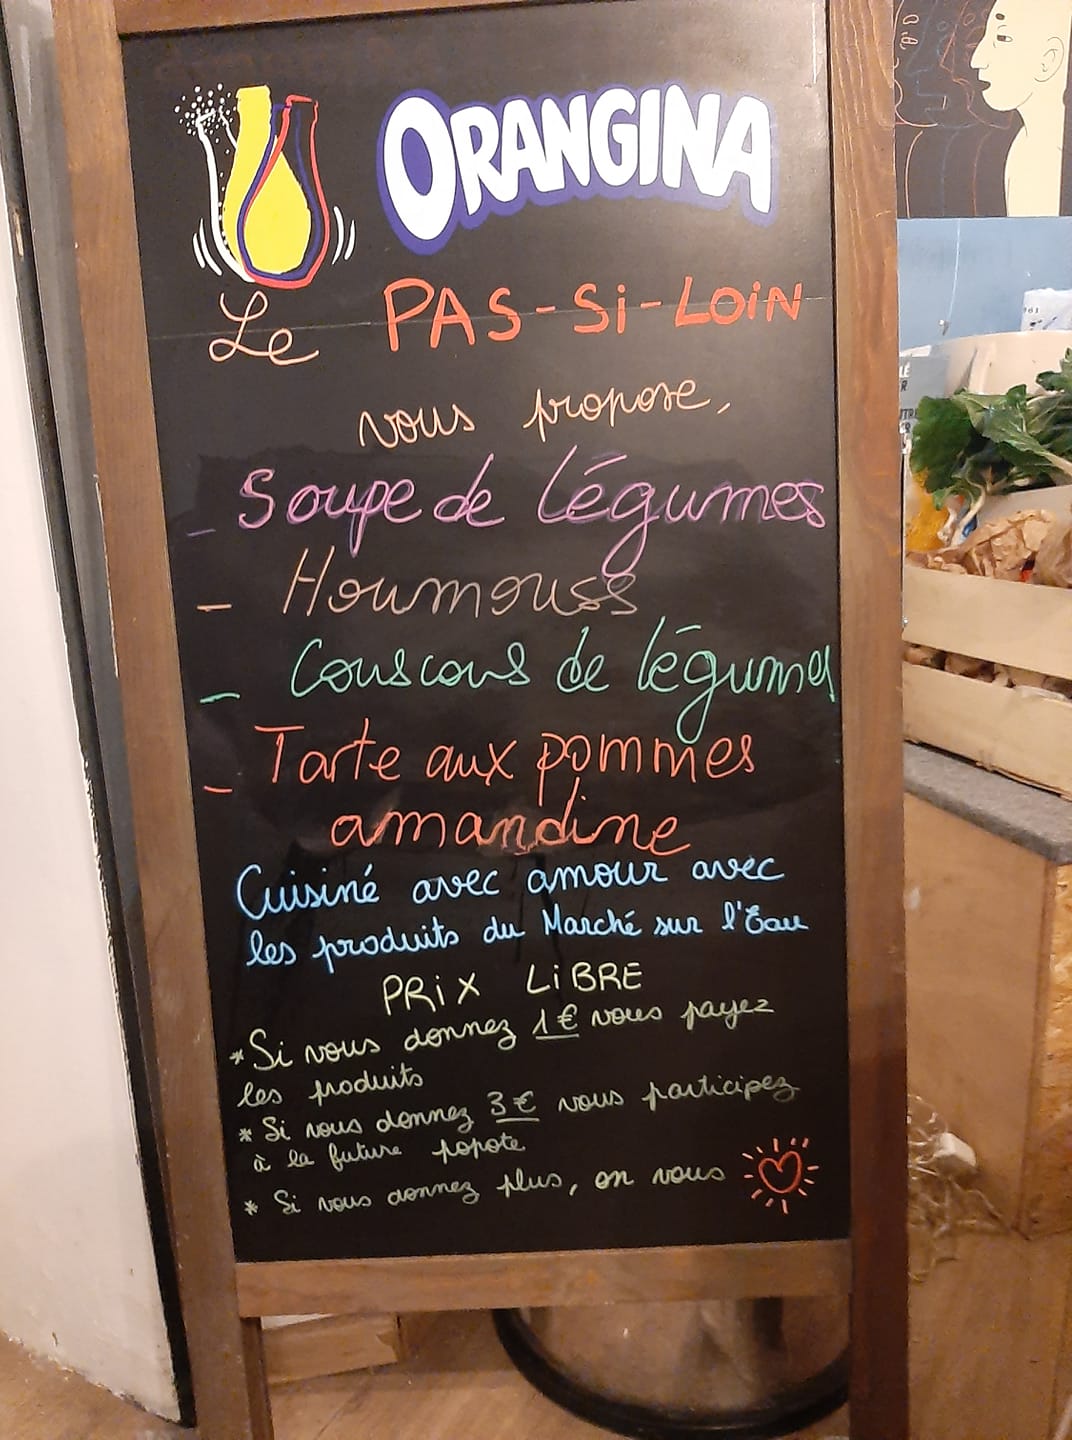 ORANGINA
Le PAS-Si-LOiN
vous propose,
- Soupe de légumes
- Houmouss
- Couscous de légumes
- Tarte aux pommes
amandine
Cuisiné avec amour avec
les produits du Marché sur l'Eau
PRiX LiBRE
* Si vous donnez 1€ vous payez
les produits
* Si vous donnez 3€ vous participez
à la future popote
* Si vous donnez plus, on vous